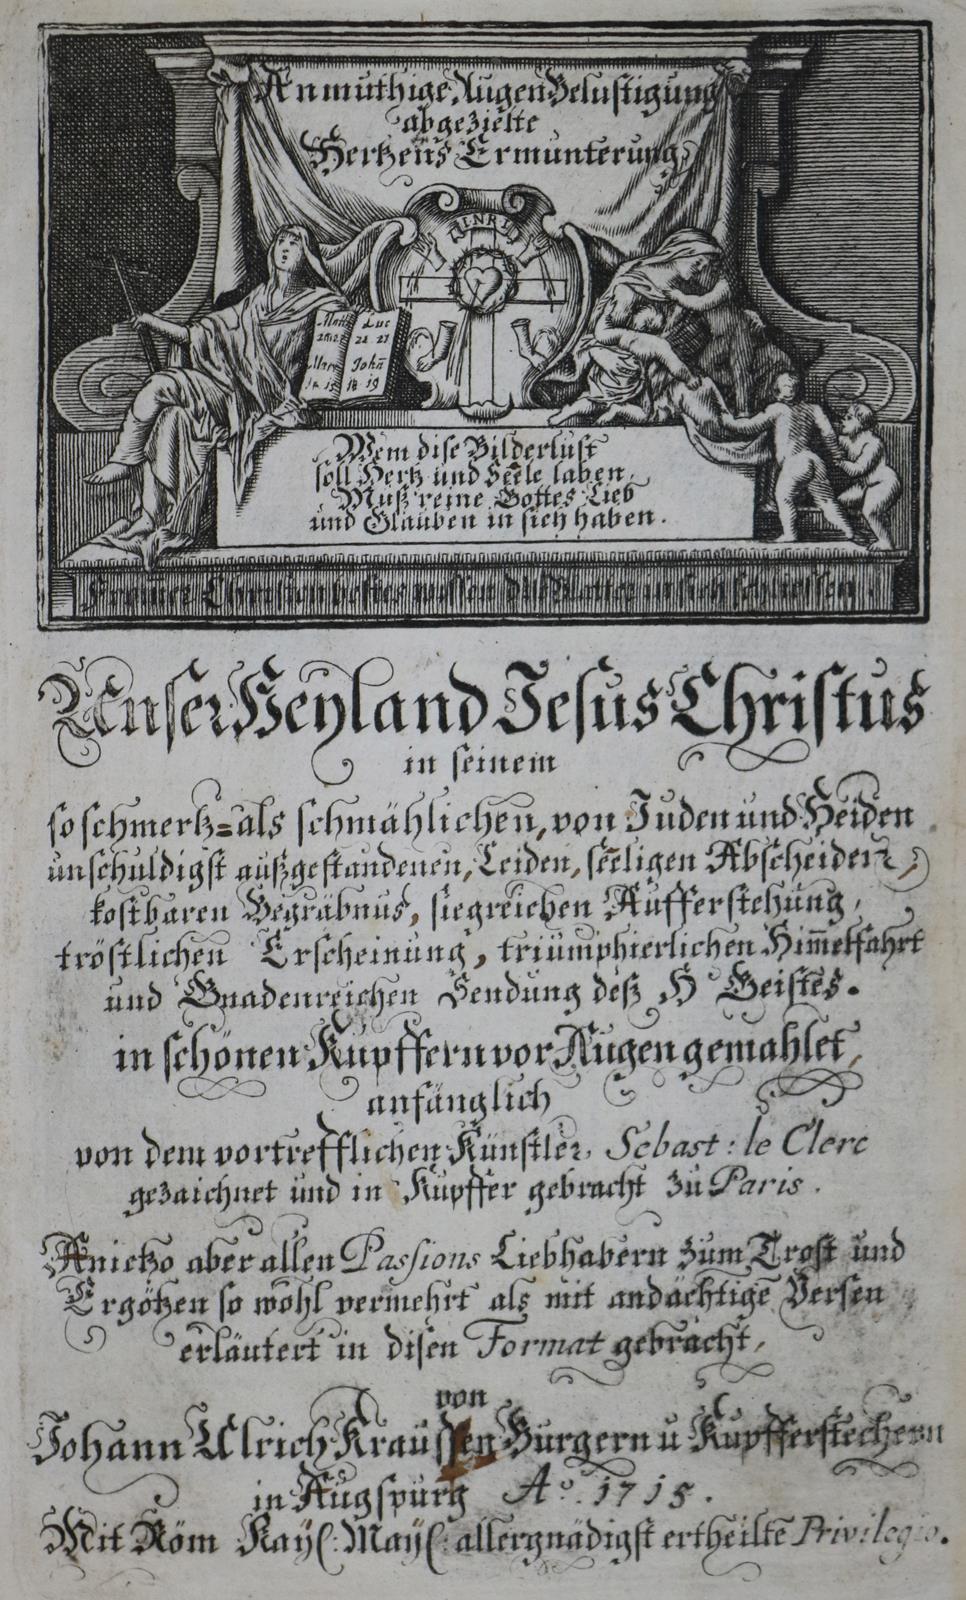 Anmuthige Augen Belustigung
abgezielte
Hertzens Ermunterung
INRI
Matt
Luc
22 23
Marc
Johañ
14 15 18 19
Wem dise Bilderlust
soll Hertz und Seele laben,
Muß reine Gottes Lieb
und Glauben in sich haben.
Fromer Christen bestes wissen dise Blätter in sich schliessen
Unser Heyland Jesus Christus
in seinem
so schmertz=als schmählichen, von Juden und Heiden
unschuldigst außgestandenen, Leiden, seeligen Abscheiden,
kostbaren Begräbnus, siegreichen Aufferstehung,
tröstlichen Erscheinung, triumphierlichen Him̄elfahrt
und Gnadenreichen Sendung deß H Geistes.
in schönen Kupffern vor Augen gemahlet,
anfänglich
von dem vortrefflichen Künstler, Sebast: le Clerc
gezaichnet und in Kupffer gebracht zu Paris.
Anietzo aber allen Passions Liebhabern zum Trost und
Ergötzen so wohl vermehrt als mit andächtigē Versen
erläutert in disen Format gebracht,
von
Johann Ulrich Kraussen Burgern u Kupfferstechern
in Augspurg Aº. 1715.
Mit Röm Kaÿs: Maÿs: allergnädigst ertheilte Privilegio.